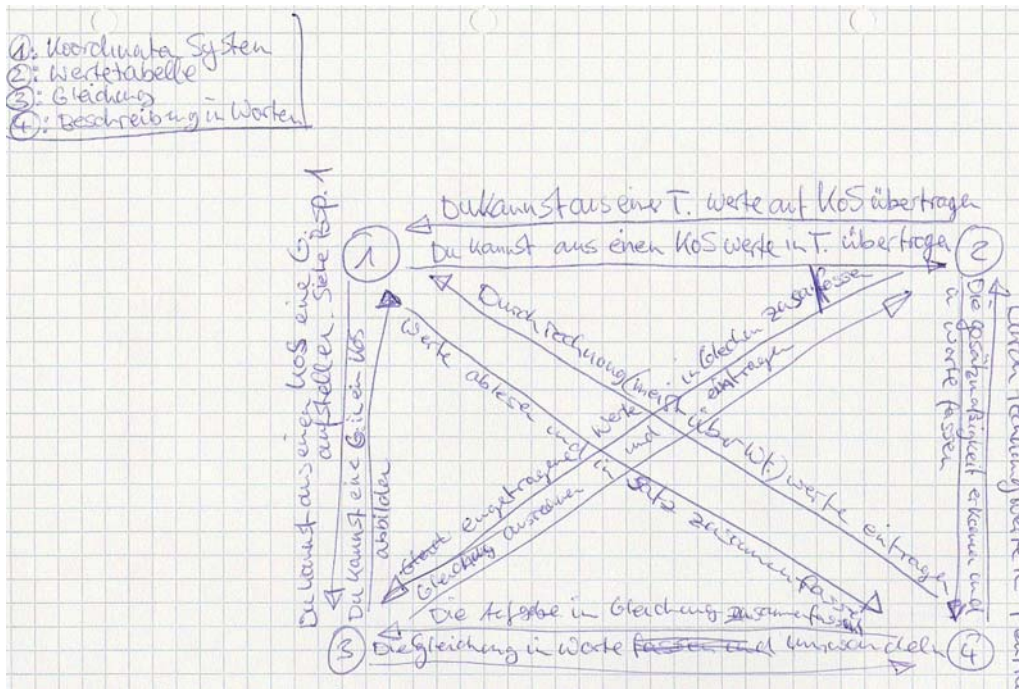 ①: Koordinaten System
②: Wertetabelle
③: Gleichung
④: Beschreibung in Worten
Du kannst aus einer T. werte auf KoS übertragen
Du kannst aus einen KoS werte in T. übertragen
①
②
Du kannst aus einen KoS eine G.
aufstellen. Siehe Bsp. 1
Du kannst eine G. in ein KoS
abbilden
Werte ablesen und in Satz zusammen fassen
Durch rechnung (meist über Wt.) werte eintragen
eingetragene Werte in Gleichen zusammenfassen
Gleichung ausrechnen und eintragen
Die gesätzmäßigkeit erkennen und
in worte fassen
Durch rechnung werte
Die Aufgabe in Gleichung zusammenfassen
Die Gleichung in Worte umwandeln
③
④